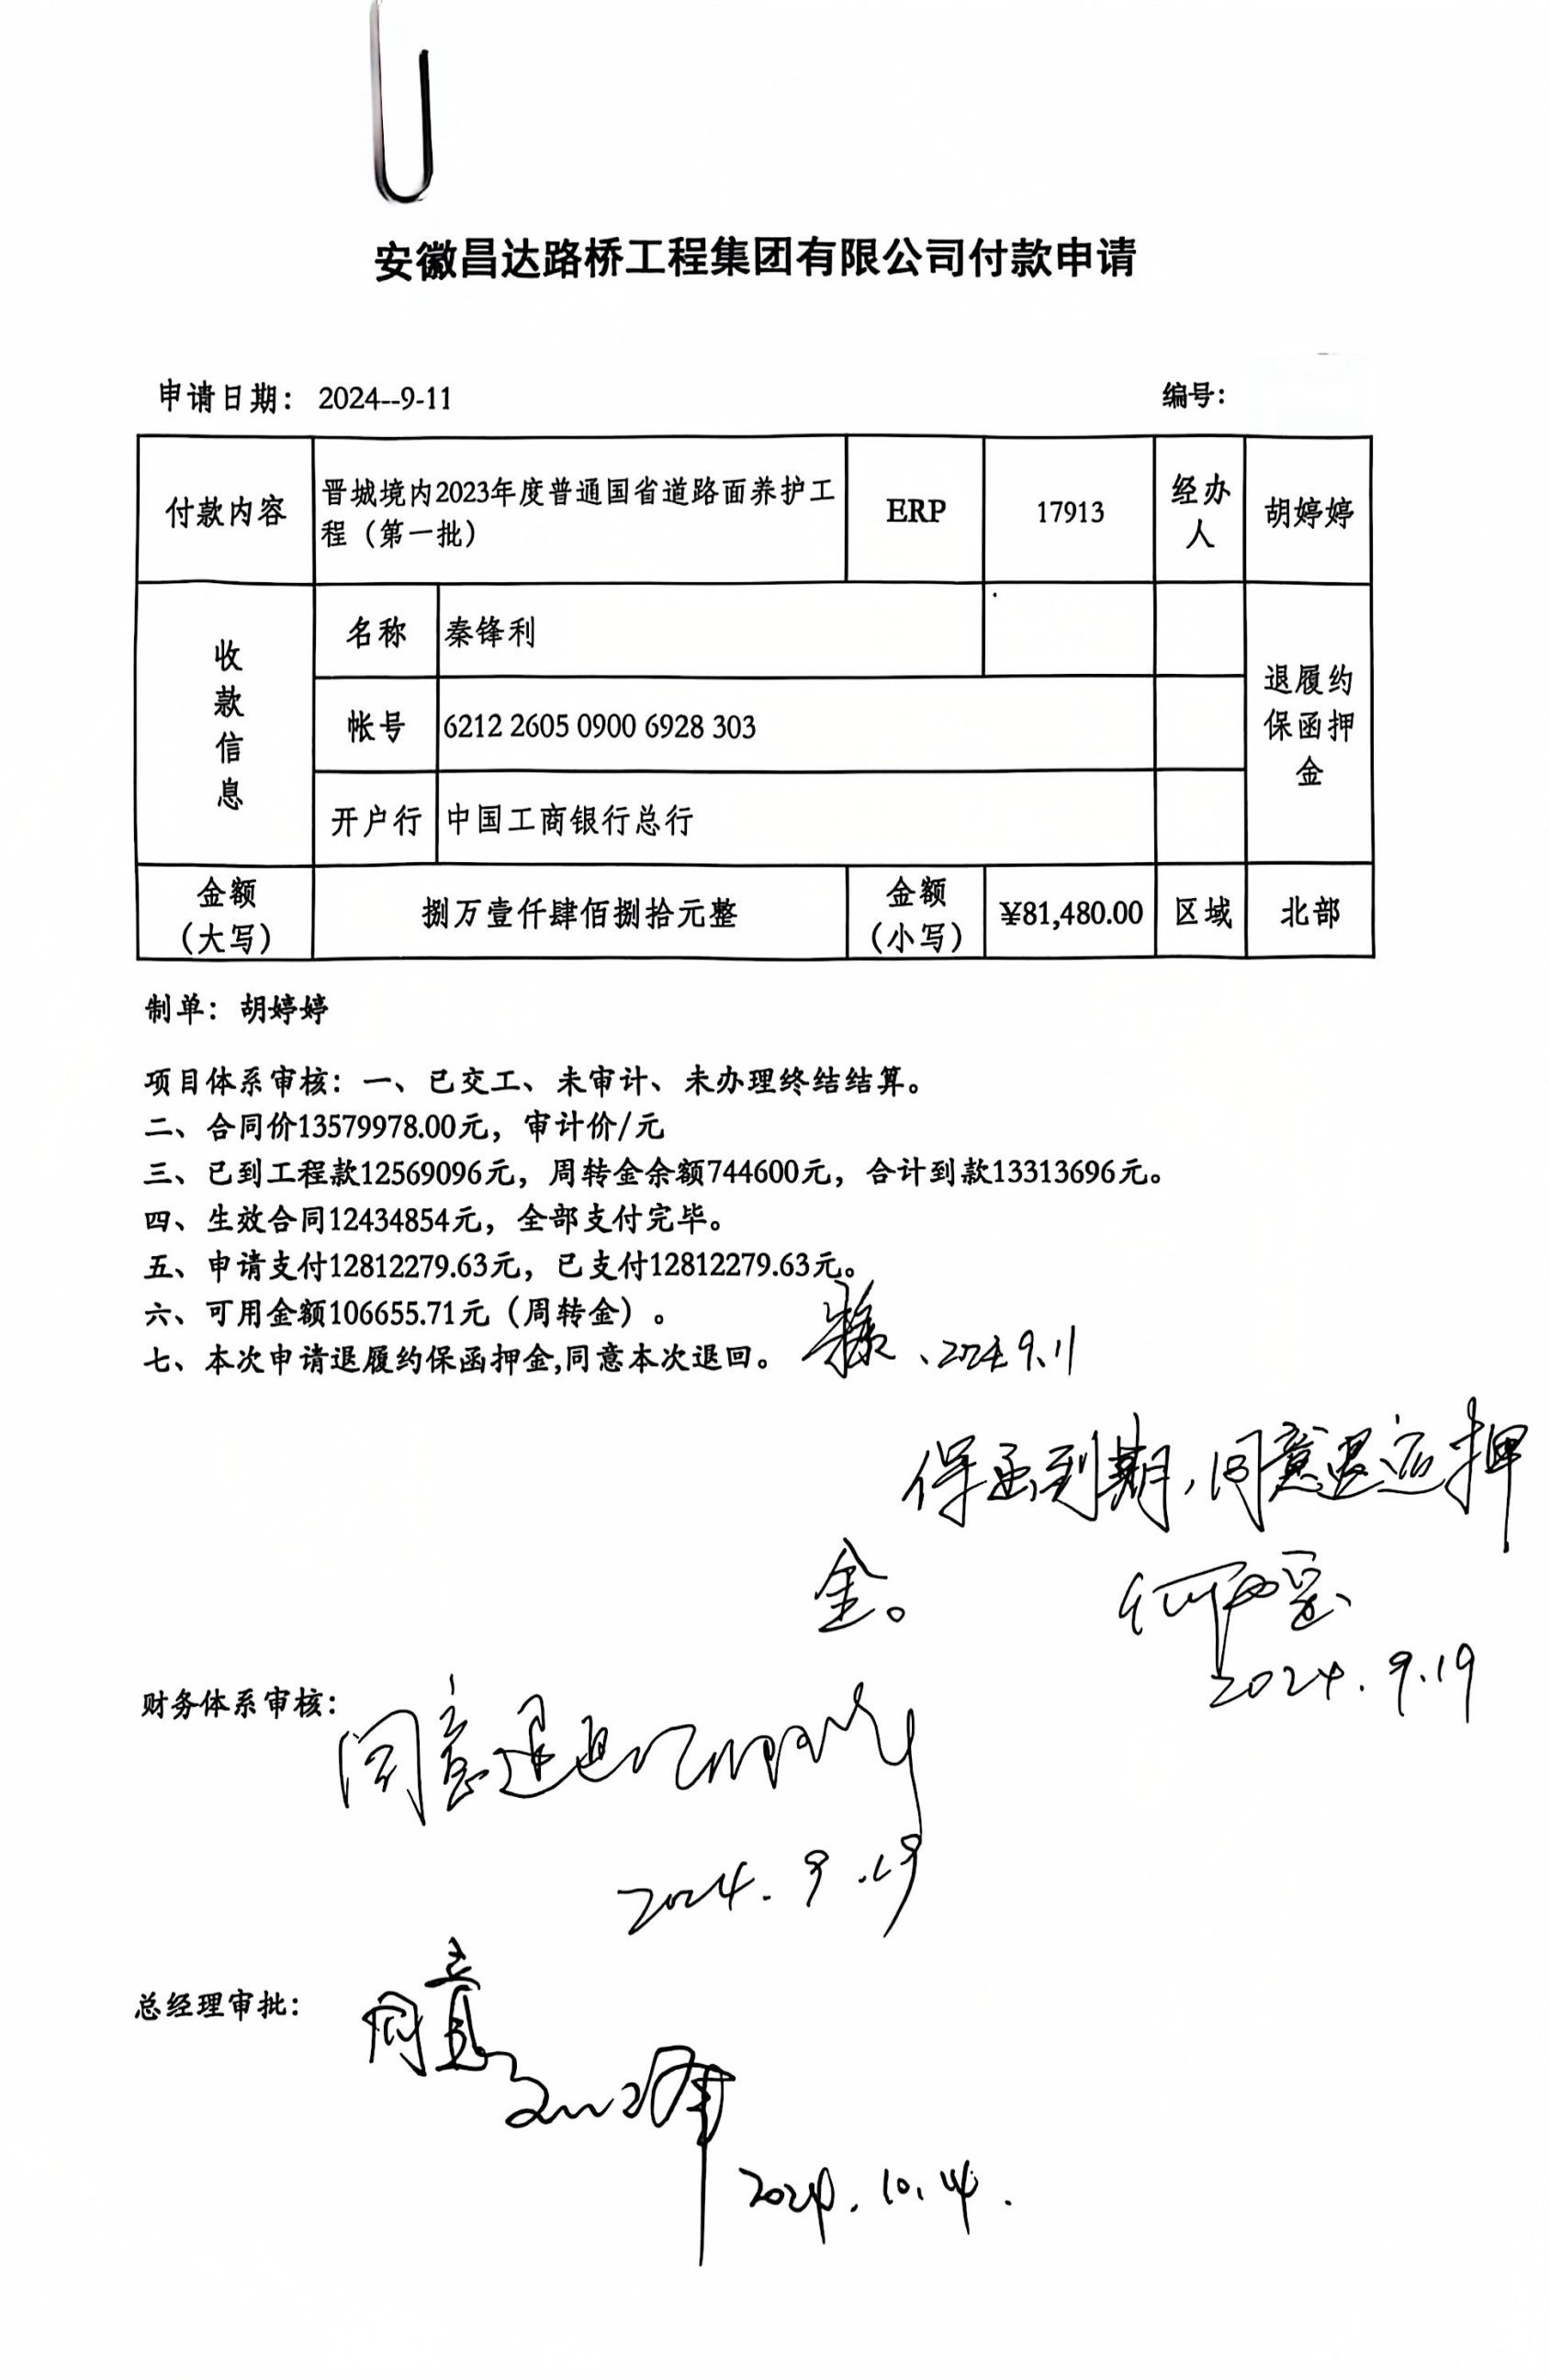 安徽昌达路桥工程集团有限公司付款申请
申请日期： 2024--9-11 编号：
付款内容 晋城境内2023年度普通国省道路面养护工程（第一批） ERP 17913 经办人 胡婷婷
收款信息 名称 秦锋利 退履约保函押金
帐号 6212 2605 0900 6928 303
开户行 中国工商银行总行
金额（大写） 捌万壹仟肆佰捌拾元整 金额（小写） ¥81,480.00 区域 北部
制单：胡婷婷
项目体系审核：一、已交工、未审计、未办理终结结算。
二、合同价13579978.00元，审计价/元
三、已到工程款12569096元，周转金余额744600元，合计到款13313696元。
四、生效合同12434854元，全部支付完毕。
五、申请支付12812279.63元，已支付12812279.63元。
六、可用金额106655.71元（周转金）。
七、本次申请退履约保函押金,同意本次退回。 2024.9.11
保函到期，同意退还押
金。
2024.9.19
财务体系审核：同意退
2024.9.19
总经理审批：同意
2024.10.14.